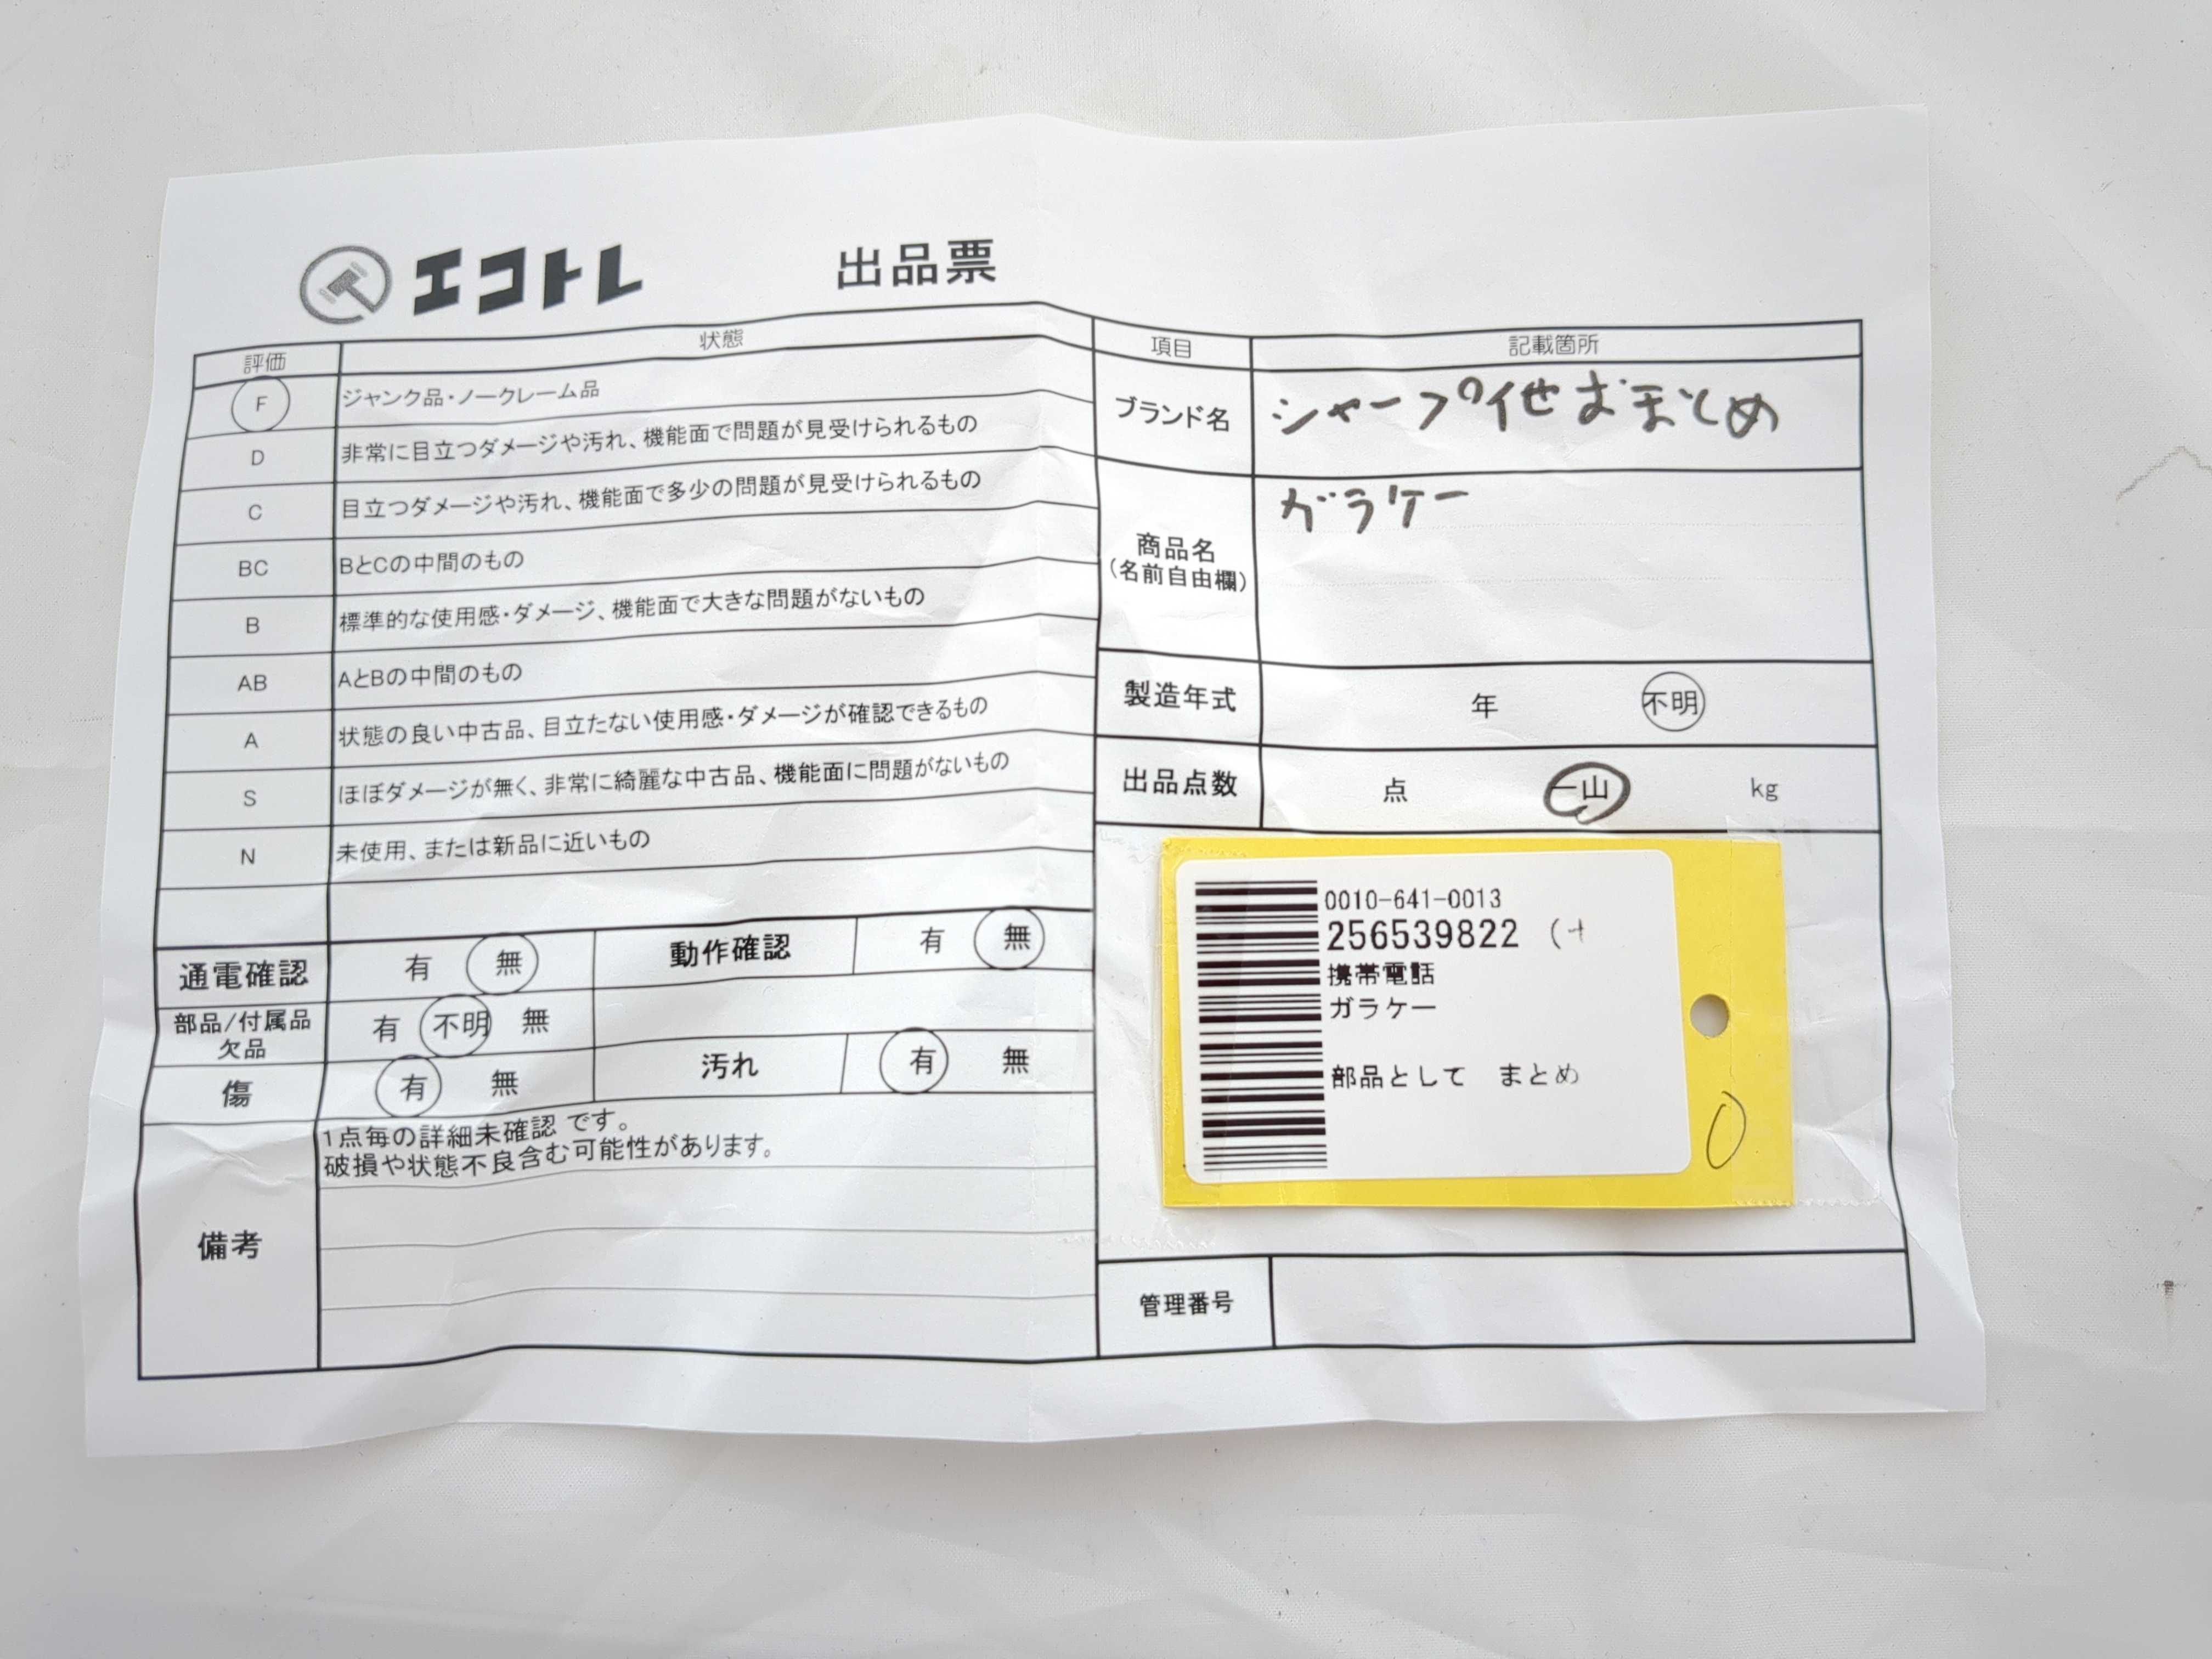 エコトレ 出品票
評価 状態
F ジャンク品・ノークレーム品
D 非常に目立つダメージや汚れ、機能面で問題が見受けられるもの
C 目立つダメージや汚れ、機能面で多少の問題が見受けられるもの
BC BとCの中間のもの
B 標準的な使用感・ダメージ、機能面で大きな問題がないもの
AB AとBの中間のもの
A 状態の良い中古品、目立たない使用感・ダメージが確認できるもの
S ほぼダメージが無く、非常に綺麗な中古品、機能面に問題がないもの
N 未使用、または新品に近いもの
通電確認 有 無 動作確認 有 無
部品/付属品
欠品 有 不明 無
傷 有 無 汚れ 有 無
備考
1点毎の詳細未確認 です。
破損や状態不良含む可能性があります。
項目 記載箇所
ブランド名 シャープ他おまとめ
商品名
(名前自由欄)
ガラケー
製造年式 年 不明
出品点数 点 一山 kg
0010-641-0013
256539822
携帯電話
ガラケー
部品として まとめ
0
管理番号